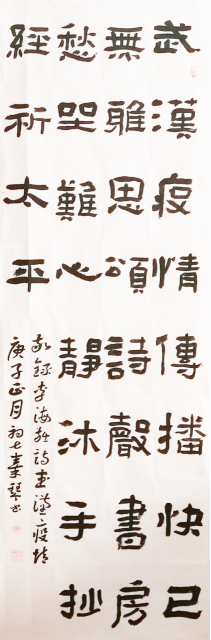 武漢疫情傳播快己
無雅思頌詩聲書房
愁坐難心靜沐手抄
經祈太平
敬錄李海詩武漢疫情
庚子正月初七素琴書